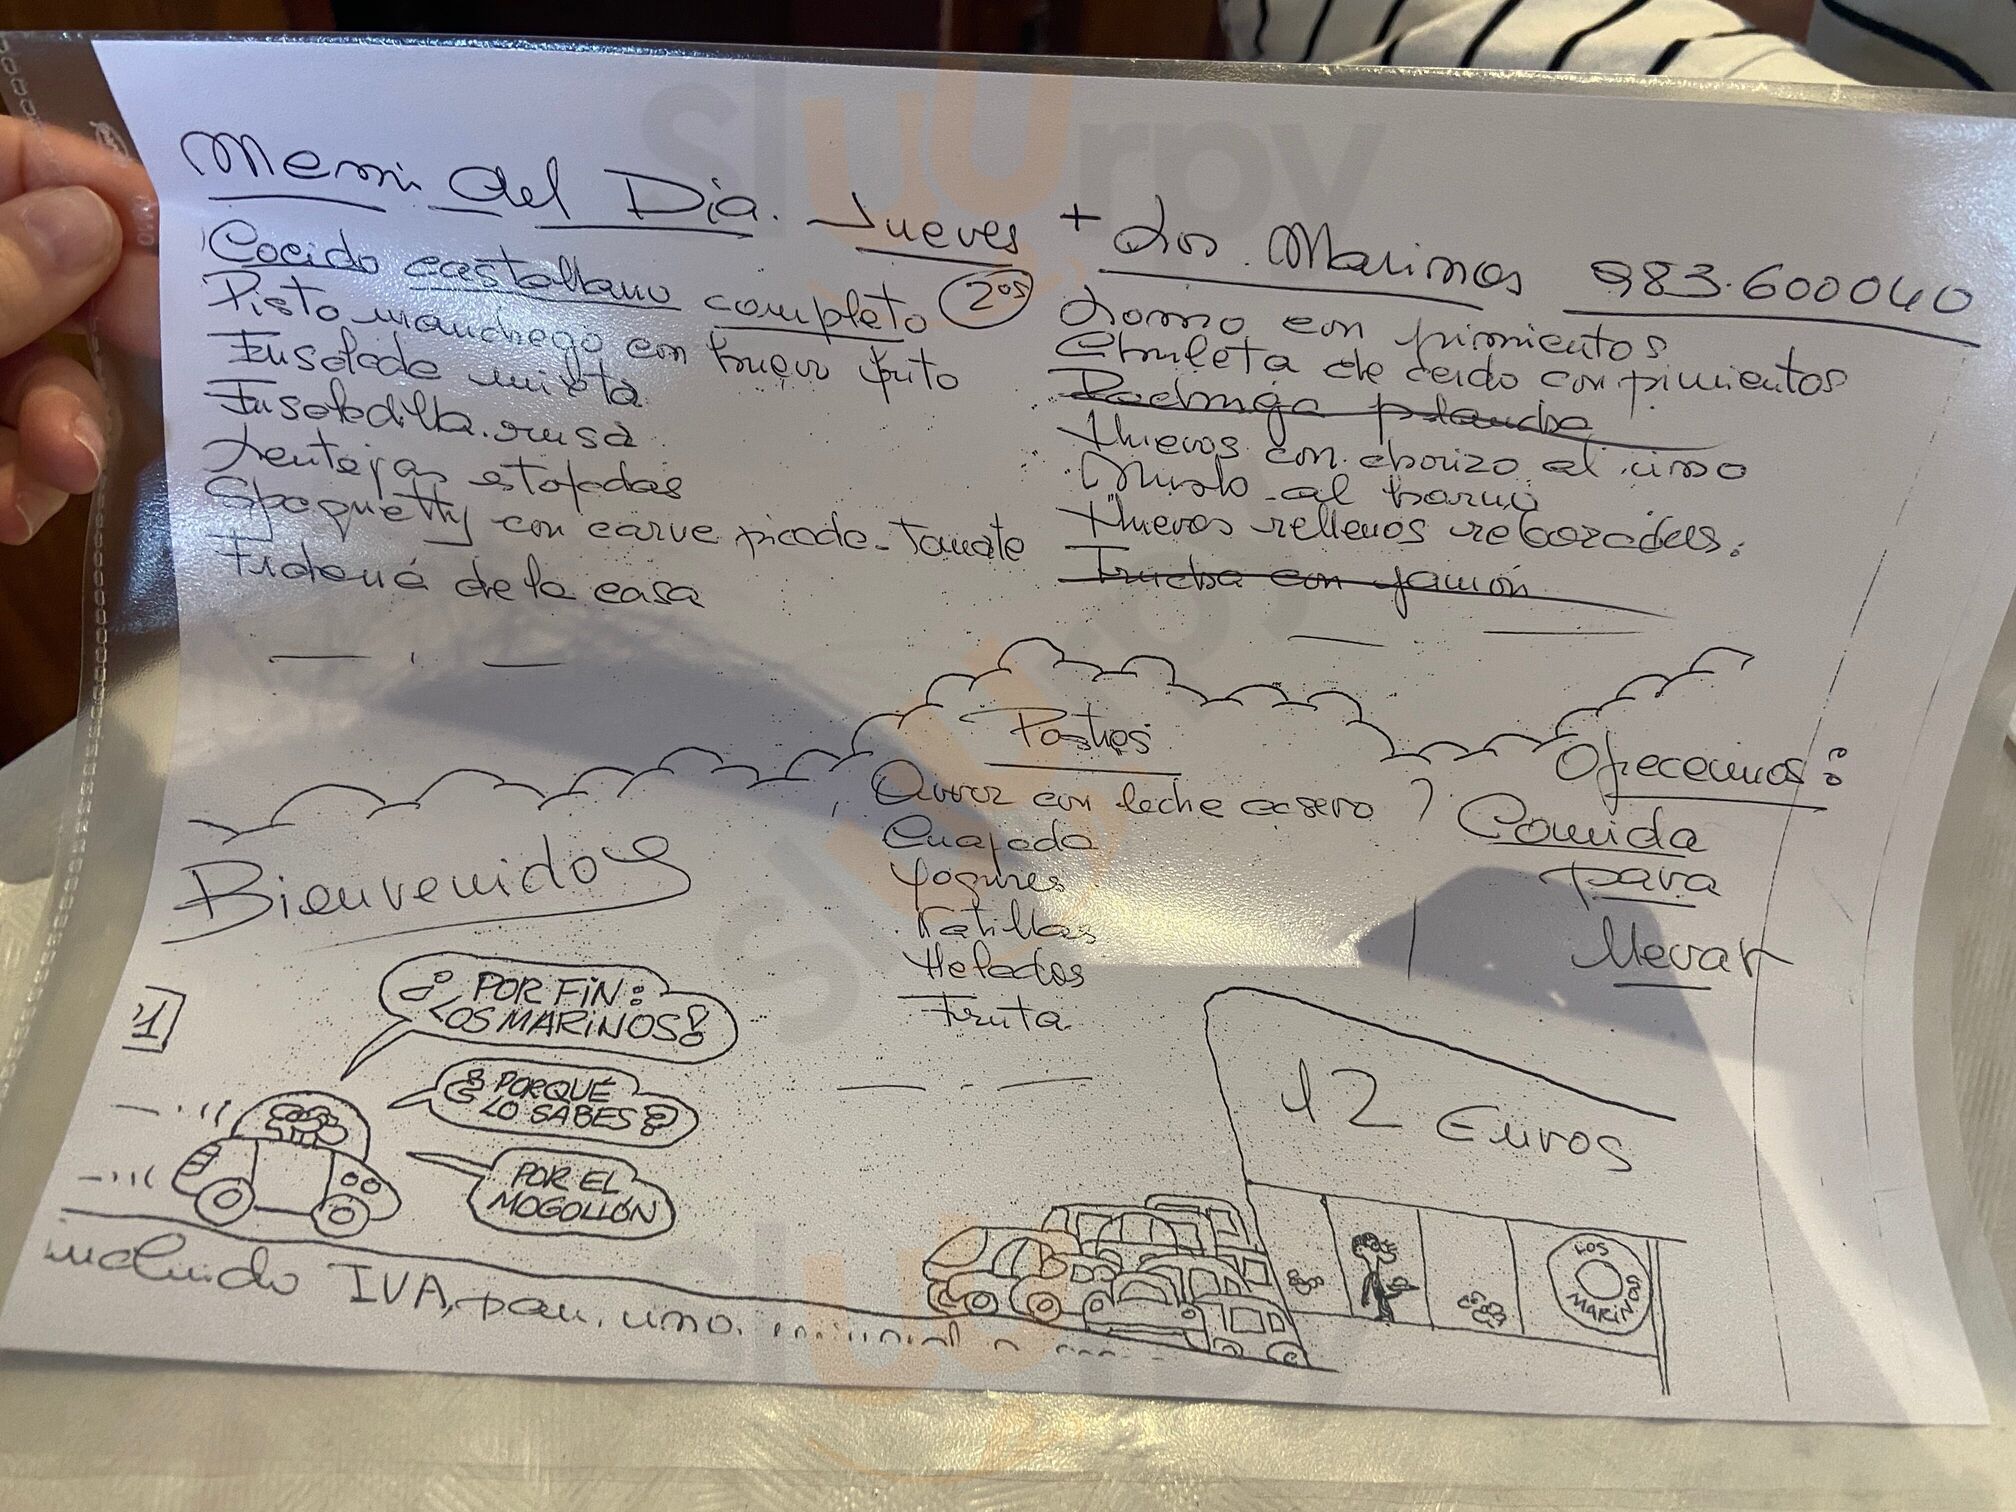 Menú del Día. Jueves + Los Marinos 983.600040
Cocido castellano completo
Pisto manchego con huevo frito
Ensalada mixta
Ensaladilla rusa
Lentejas estofadas
Spaguetty con carve picada - Tomate
Fideuá de la casa
2os
Lomo con pimientos
Chuleta de cerdo con pimientos
Pechuga plancha
Huevos con chorizo al vino
Muslo al horno
Huevos rellenos rebozados.
Trucha con jamón
Postres
Arroz con leche casero
Cuajada
Yogures
Natillas
Helados
Fruta
Ofrecemos:
Comida
para
llevar
Bienvenidos
1
¡POR FIN:
LOS MARINOS!
¿PORQUÉ
LO SABES?
POR EL
MOGOLLÓN
12 Euros
LOS
MARINOS
incluido IVA, pan, vino,
sluurpy
sluurpy
sluurpy